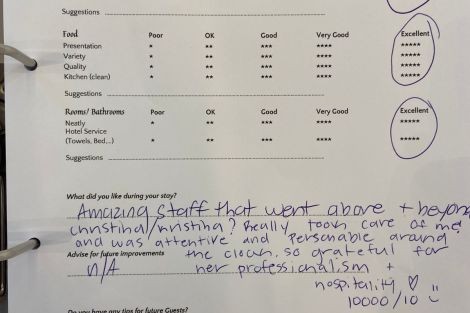 Suggestions
Food Poor OK Good Very Good Excellent
Presentation * ** *** **** *****
Variety * ** *** **** *****
Quality * ** *** **** *****
Kitchen (clean) * ** *** **** *****
Suggestions
Rooms/ Bathrooms Poor OK Good Very Good Excellent
Neatly * ** *** **** *****
Hotel Service
(Towels, Bed...) * ** *** **** *****
Suggestions
What did you like during your stay?
Amazing staff that went above + beyond
christina/kristina? Really took care of me!
and was attentive and personable around
Advise for future improvements
the clock, so grateful for
n/A
her professionalism +
hospitality ♡
10000/10 :)
Do you have any tips for future Guests?